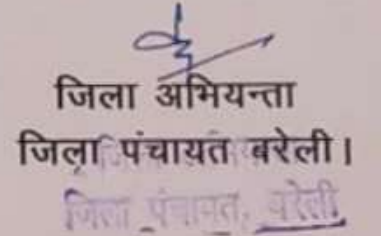 जिला अभियन्ता
जिला पंचायत बरेली।
जिला पंचायत, बरेली